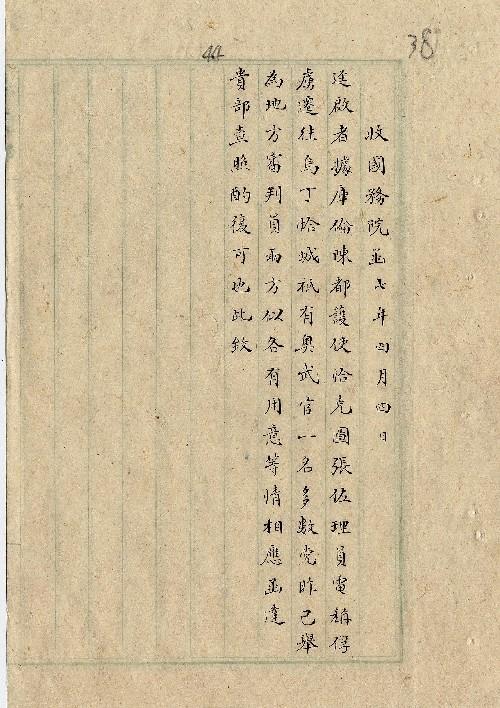 38
44
收國務院函 七年四月四日
逕啟者據庫倫陳都護使恰克圖張佐理員電稱俘
虜遷往烏丁恰城祇有奧武官一名多數党昨已舉
為地方審判員兩方似各有用意等情相應函達
貴部查照酌復可也此致